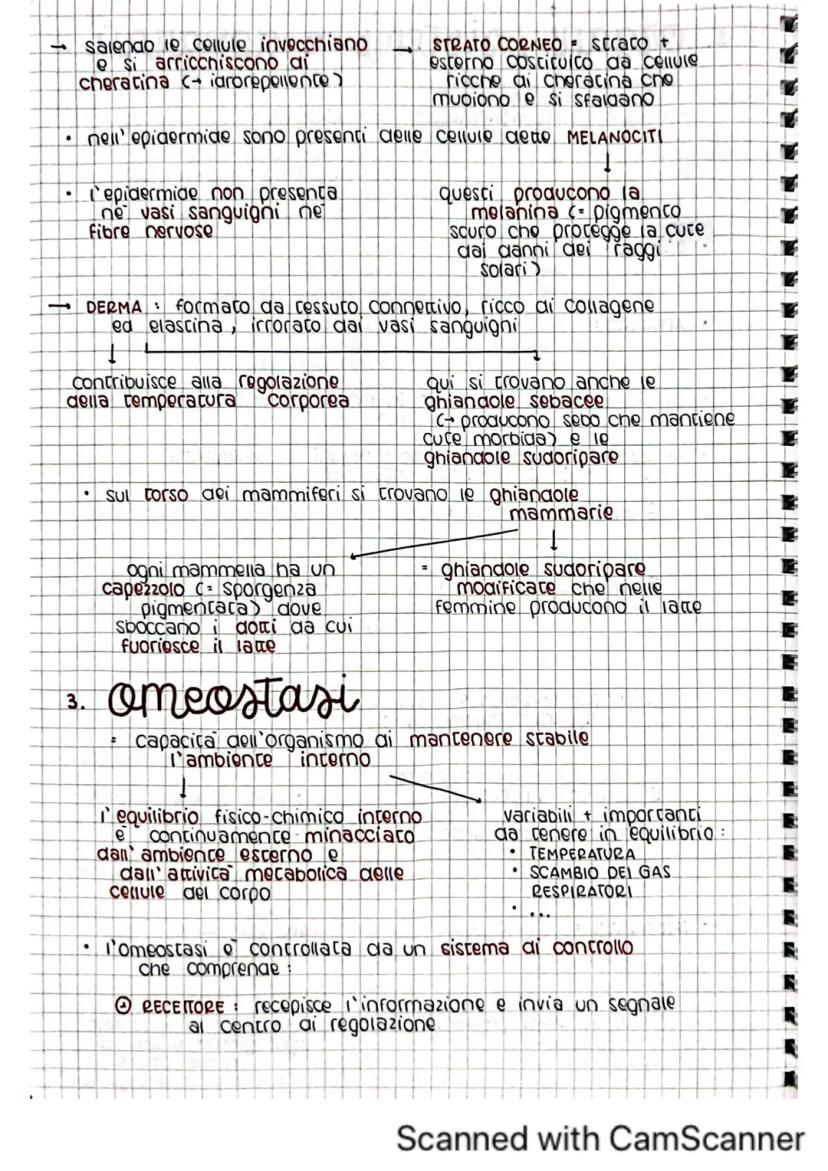 → salendo le cellule invecchiano
e si arricchiscono di
cheratina (→ idrorepellente)
→ STRATO CORNEO = strato +
esterno costituito da cellule
ricche di cheratina che
muoiono e si sfaldano
• nell'epidermide sono presenti delle cellule dette MELANOCITI
↓
• l'epidermide non presenta
nè vasi sanguigni nè
fibre nervose
questi producono la
melanina (= pigmento
scuro che protegge la cute
dai danni dei raggi
solari)
→ DERMA : formato da tessuto connettivo, ricco di collagene
ed elastina, irrorato dai vasi sanguigni
↓
contribuisce alla regolazione
della temperatura corporea
qui si trovano anche le
ghiandole sebacee
(→ producono sebo che mantiene
cute morbida) e le
ghiandole sudoripare
• sul torso dei mammiferi si trovano le ghiandole
mammarie
ogni mammella ha un
capezzolo (= sporgenza
pigmentata) dove
sboccano i dotti da cui
fuoriesce il latte
= ghiandole sudoripare
modificate che nelle
femmine producono il latte
3. omeostasi
= capacità dell'organismo di mantenere stabile
l'ambiente interno
l'equilibrio fisico-chimico interno
è continuamente minacciato
dall'ambiente esterno e
dall'attività metabolica delle
cellule del corpo
variabili + importanti
da tenere in equilibrio :
• TEMPERATURA
• SCAMBIO DEI GAS
RESPIRATORI
• ...
• l'omeostasi è controllata da un sistema di controllo
che comprende :
RECETTORE : recepisce l'informazione e invia un segnale
al centro di regolazione
Scanned with CamScanner